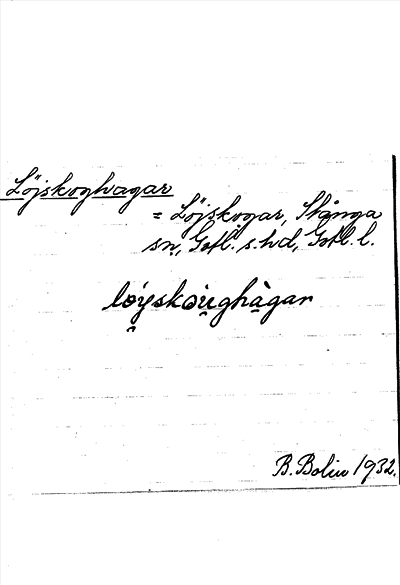 Löjskoghagar
= Löjskogar, Stånga
sn, Gotl. s. hd, Gotl. l.
löyskòu̯ghàgar
B. Bolin 1932.